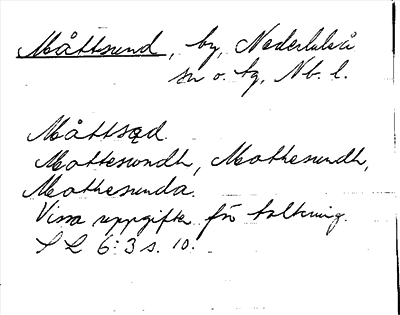 Måttsund, by, Nederluleå
sn o. tg, Nb. l.
Måttsød
Mottesondh, Mothesundh,
Mothesunda.
Vissa uppgifter för tolkning.
S L 6:3 s. 10.